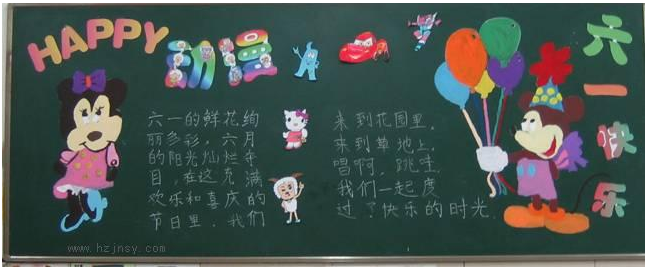 HAPPY
动漫
六一的鲜花绚
丽多彩，六月
的阳光灿烂夺
目，在这充满
欢乐和喜庆的
节日里，我们
来到花园里，
来到草地上，
唱啊，跳哇，
我们一起度
过了快乐的时光.
六一快乐
www.hzjnsy.com